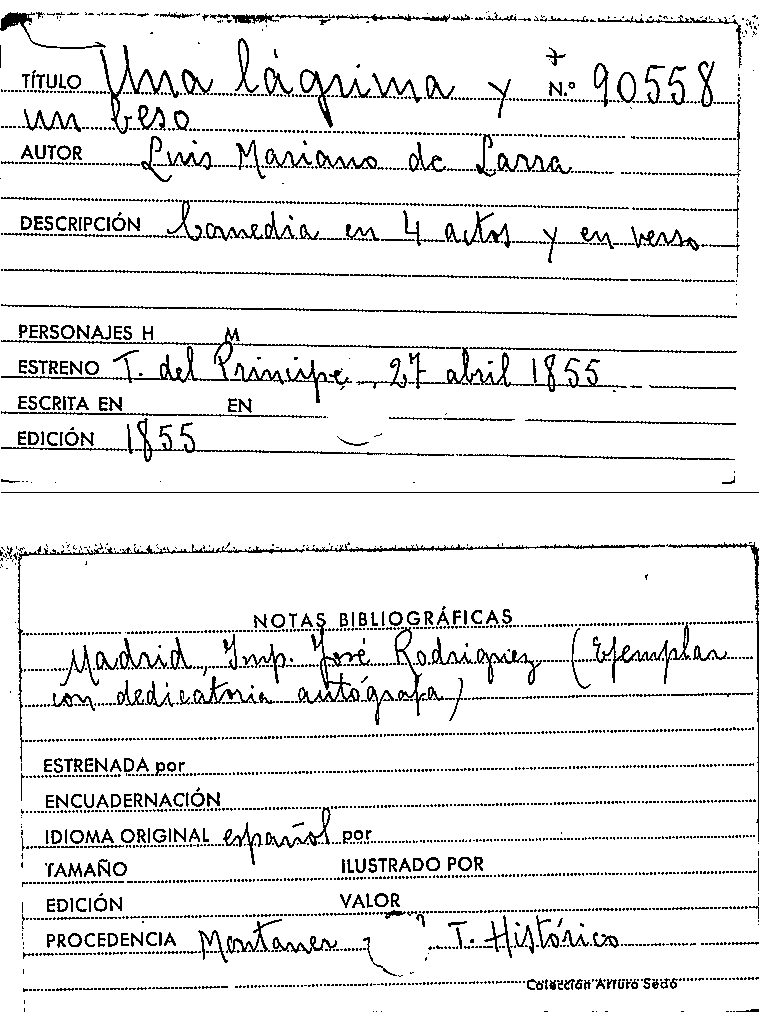 TÍTULO Una lágrima y N.º 90558
un beso
AUTOR Luis Mariano de Larra
DESCRIPCIÓN Comedia en 4 actos y en verso
PERSONAJES H M
ESTRENO T. del Príncipe, 27 abril 1855
ESCRITA EN EN
EDICIÓN 1855
NOTAS BIBLIOGRÁFICAS
Madrid, Imp. José Rodriguez (Ejemplar
con dedicatoria autógrafa)
ESTRENADA por
ENCUADERNACIÓN
IDIOMA ORIGINAL español por
TAMAÑO ILUSTRADO POR
EDICIÓN VALOR
PROCEDENCIA Montaner T. Histórico
Colección Arturo Sedó